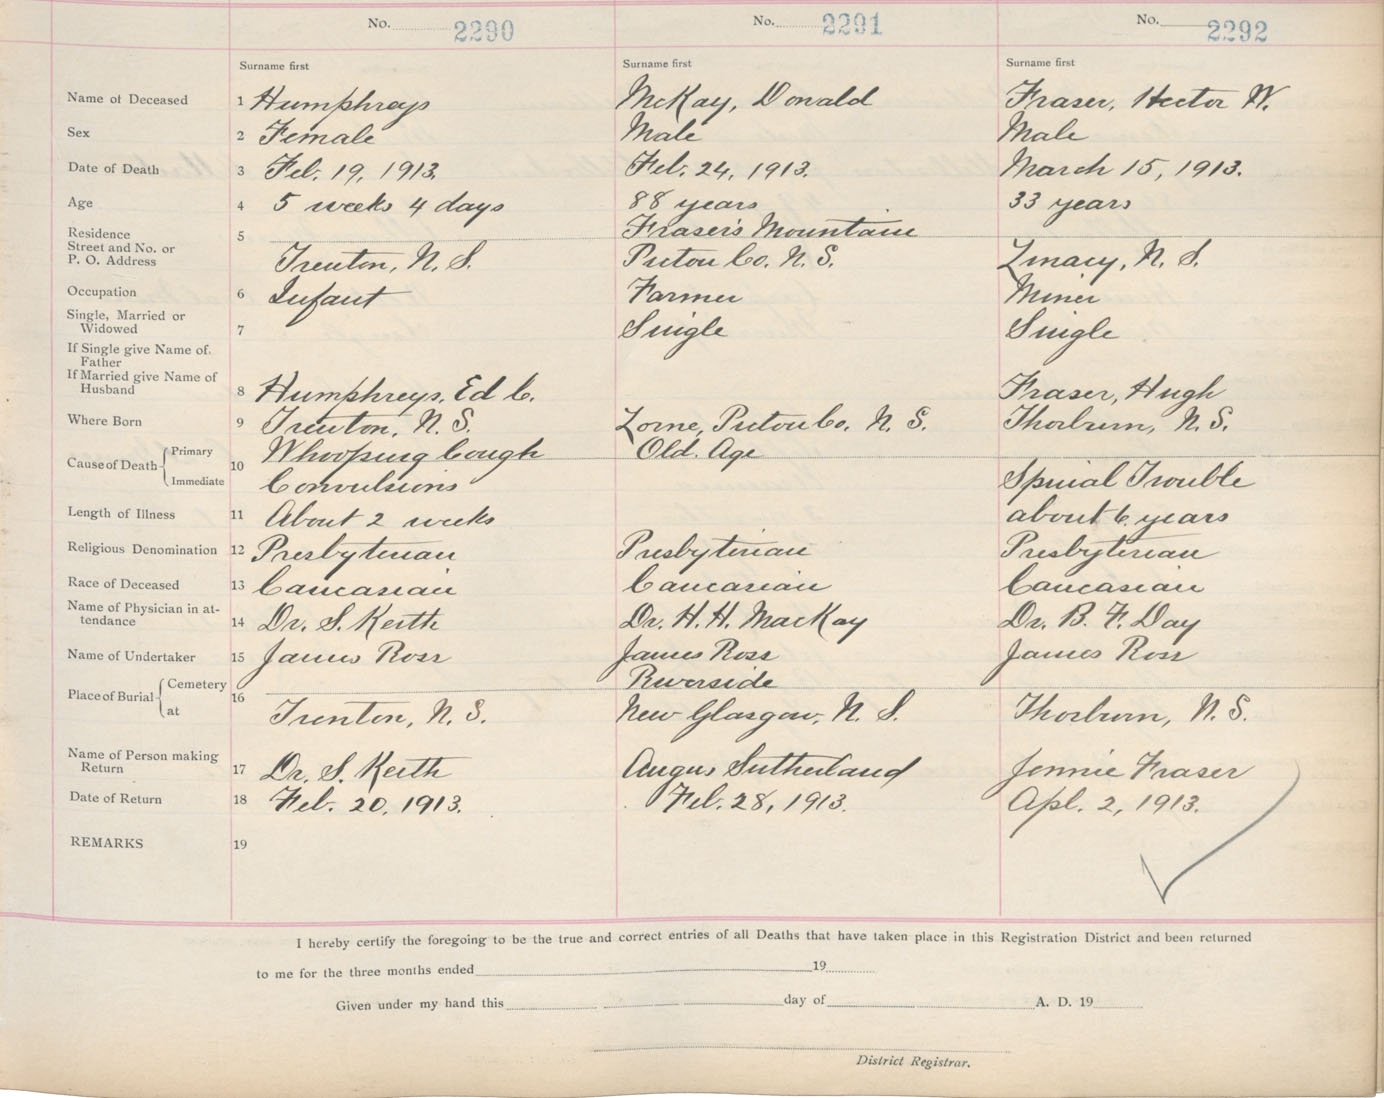 No. 2290 No. 2291 No. 2292
Surname first Surname first Surname first
Name of Deceased 1 Humphreys McKay, Donald Fraser, Hector W.
Sex 2 Female Male Male
Date of Death 3 Feb. 19, 1913. Feb. 24, 1913. March 15, 1913.
Age 4 5 weeks 4 days 88 years 33 years
Residence 5 Fraser's Mountain
Street and No. or
P. O. Address Trenton, N. S. Pictou Co. N. S. N. S.
Occupation 6 Infant Farmer Miner
Single, Married or
Widowed 7 Single Single
If Single give Name of
Father
If Married give Name of
Husband 8 Humphreys, Ed C. Fraser, Hugh
Where Born 9 Trenton, N. S. Lorne, Pictou Co. N. S. Thorburn, N. S.
Cause of Death Primary 10 Whooping Cough Old. Age
Immediate Convulsions Spinal Trouble
Length of Illness 11 About 2 weeks about 6 years
Religious Denomination 12 Presbyterian Presbyterian Presbyterian
Race of Deceased 13 Caucasian Caucasian Caucasian
Name of Physician in at-
tendance 14 Dr. S. Keith Dr. H. H. MacKay Dr. B. F. Day
Name of Undertaker 15 James Ross James Ross James Ross
Place of Burial Cemetery 16 Riverside
at Trenton, N. S. New Glasgow, N. S. Thorburn, N. S.
Name of Person making
Return 17 Dr. S. Keith Angus Sutherland Jennie Fraser
Date of Return 18 Feb. 20, 1913. Feb. 28, 1913. Apl. 2, 1913.
REMARKS 19
I hereby certify the foregoing to be the true and correct entries of all Deaths that have taken place in this Registration District and been returned
to me for the three months ended 19
Given under my hand this day of A. D. 19
District Registrar.